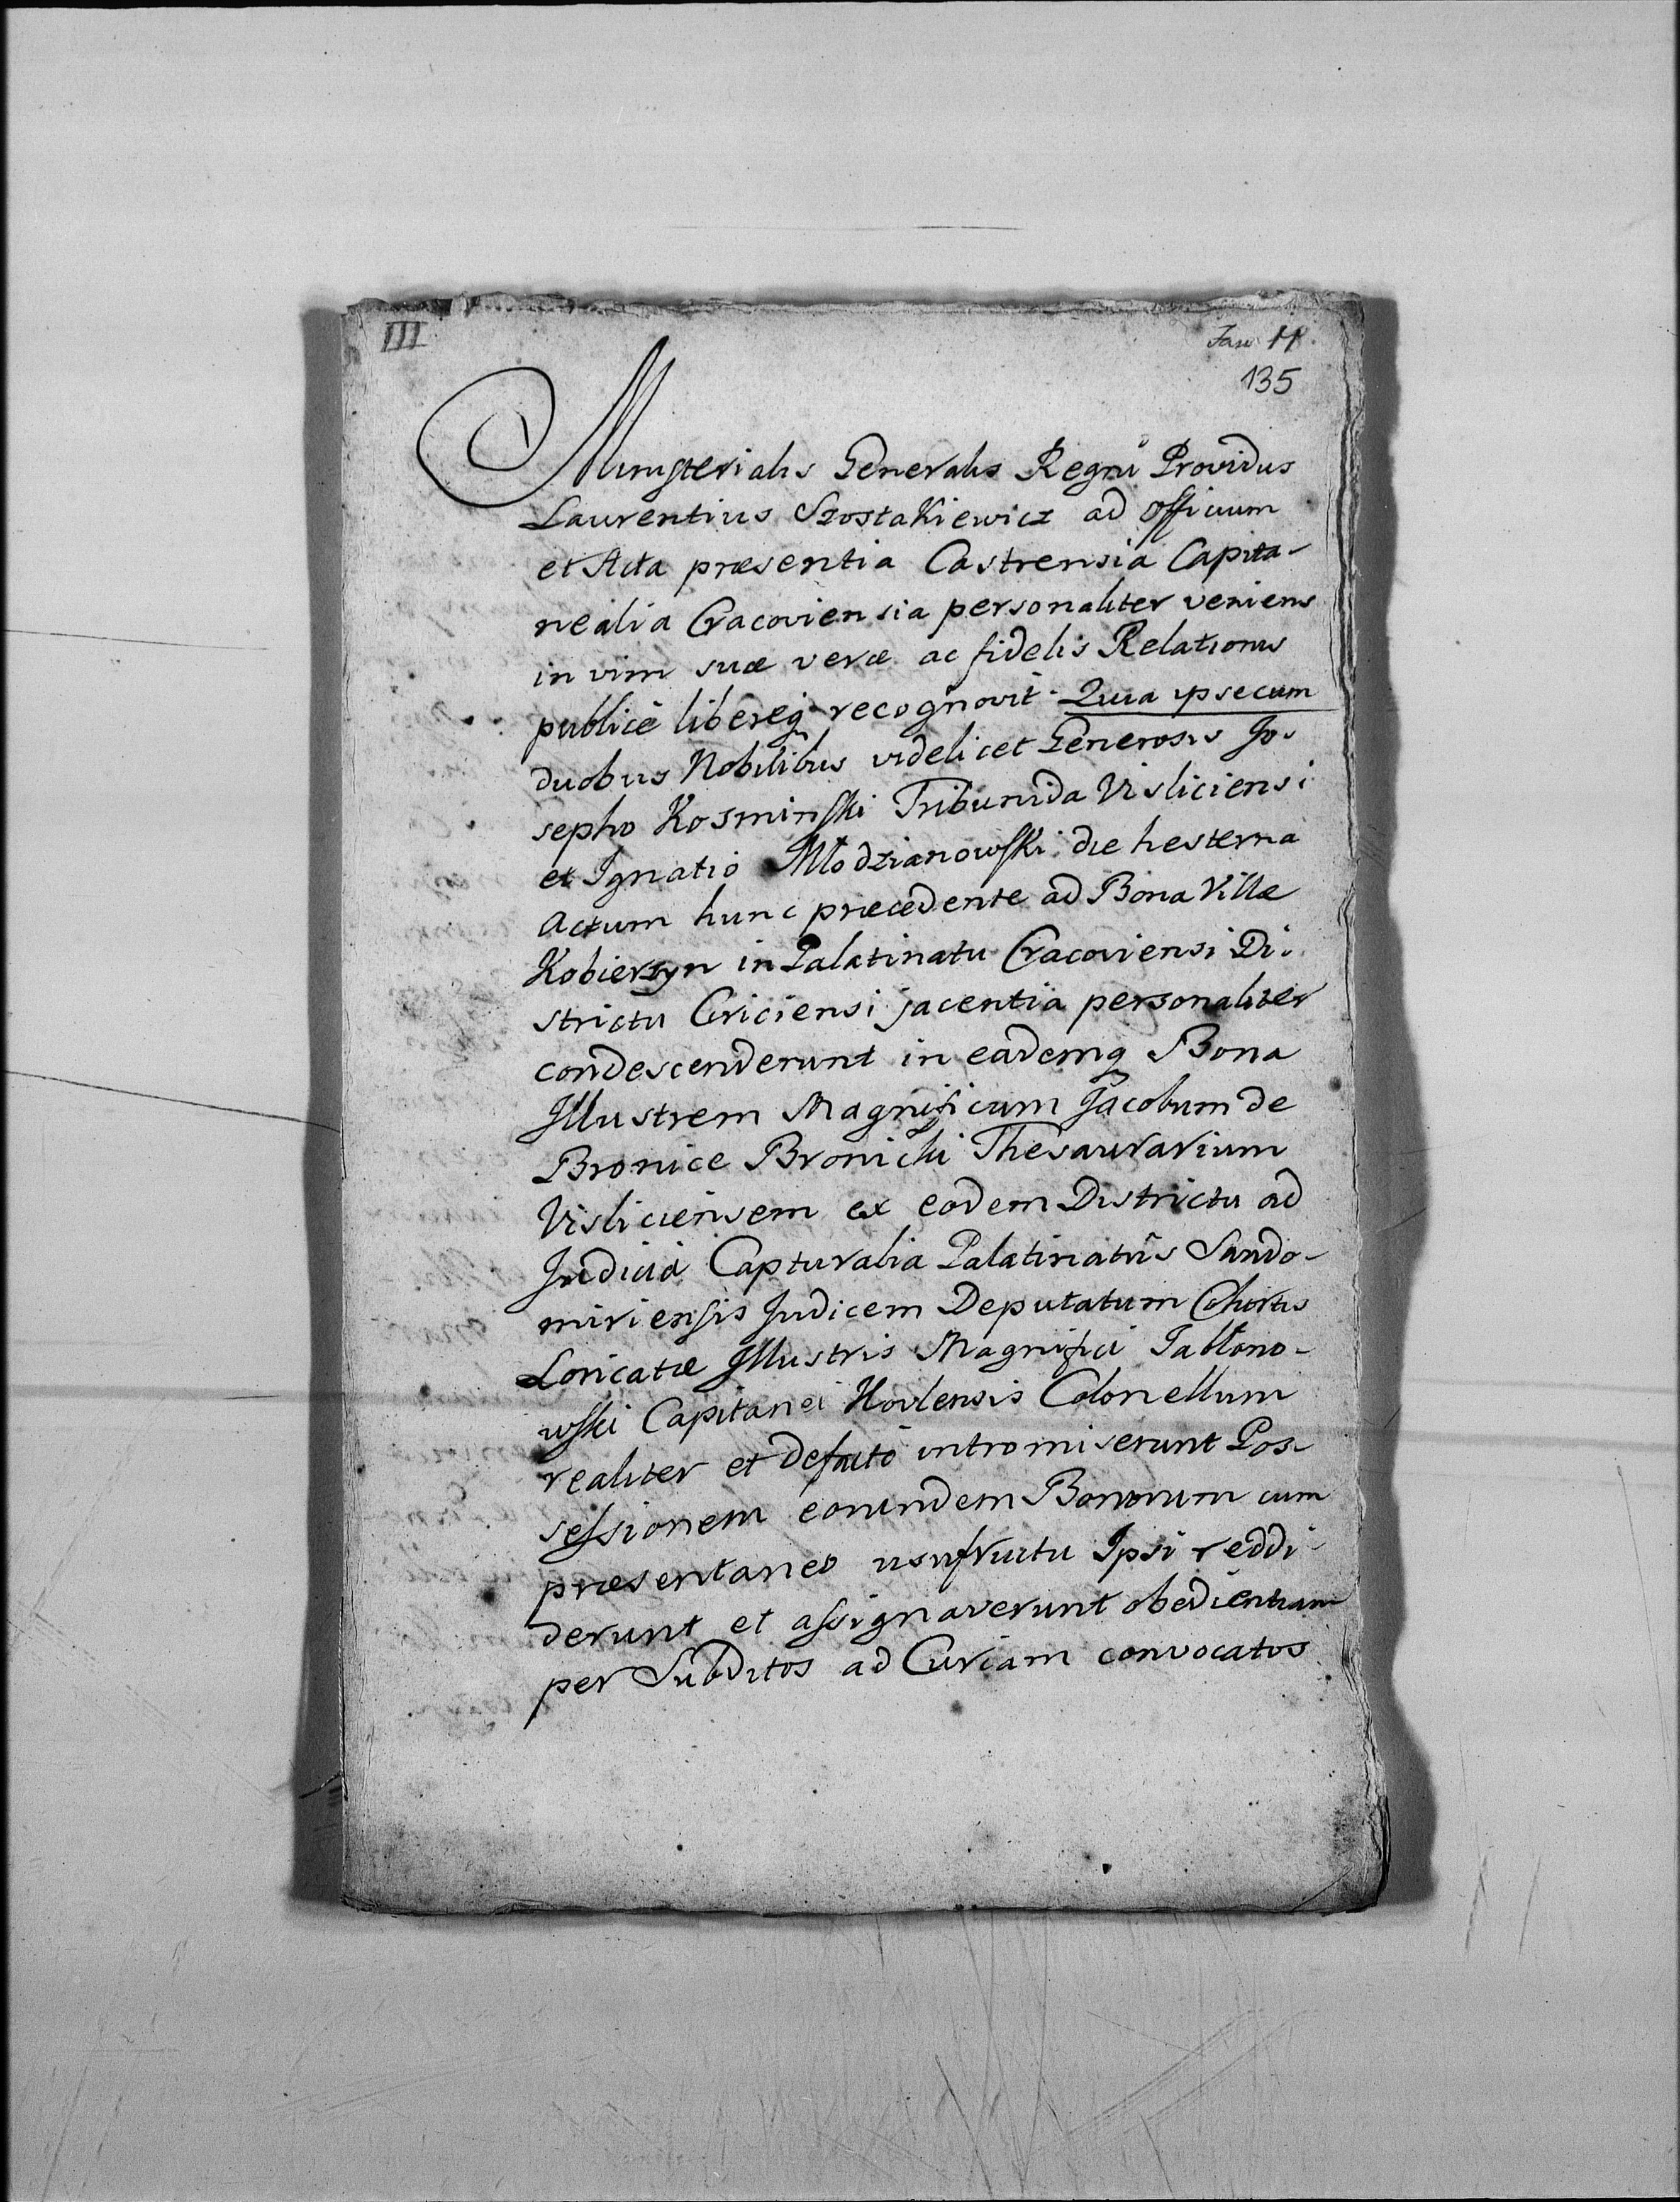 III
135
Ministerialis Generalis Regni Providus
Laurentius Szostakiewicz ad Officium
et Acta præsentia Castrensia Capita-
nealia Cracoviensia personaliter veniens
in vim suæ veræ ac fidelis Relationis
publicè libereq recognovit. Quia ipse cum
duobus Nobilibus videlicet Generosis Jo-
sepho Kosminski Tribunida Visliciensi
et Ignatio Młodzianowski die hesterna
Actum hunc præcedente ad Bona Villæ
Kobierzyn in Palatinatu Cracoviensi Di-
strictu Criciensi jacentia personaliter
condescenderunt in eademq Bona
Illustrem Magnificum Jacobum de
Bronice Bronicki Thesaurarium
Visliciensem ex eodem Districtu ad
Judicia Capturalia Palatinatûs Sando-
miriensis Judicem Deputatum Cohortis
Loricatæ Illustris Magnifici Jabłono-
wski Capitanei Kovlensis Colonellum
realiter et defactò intromiserunt Pos-
sessionem eorundem Bonorum cum
præsentaneo usufructu Ipsi reddi-
derunt et assignaverunt obedientiam
per Subditos ad Curiam convocatos